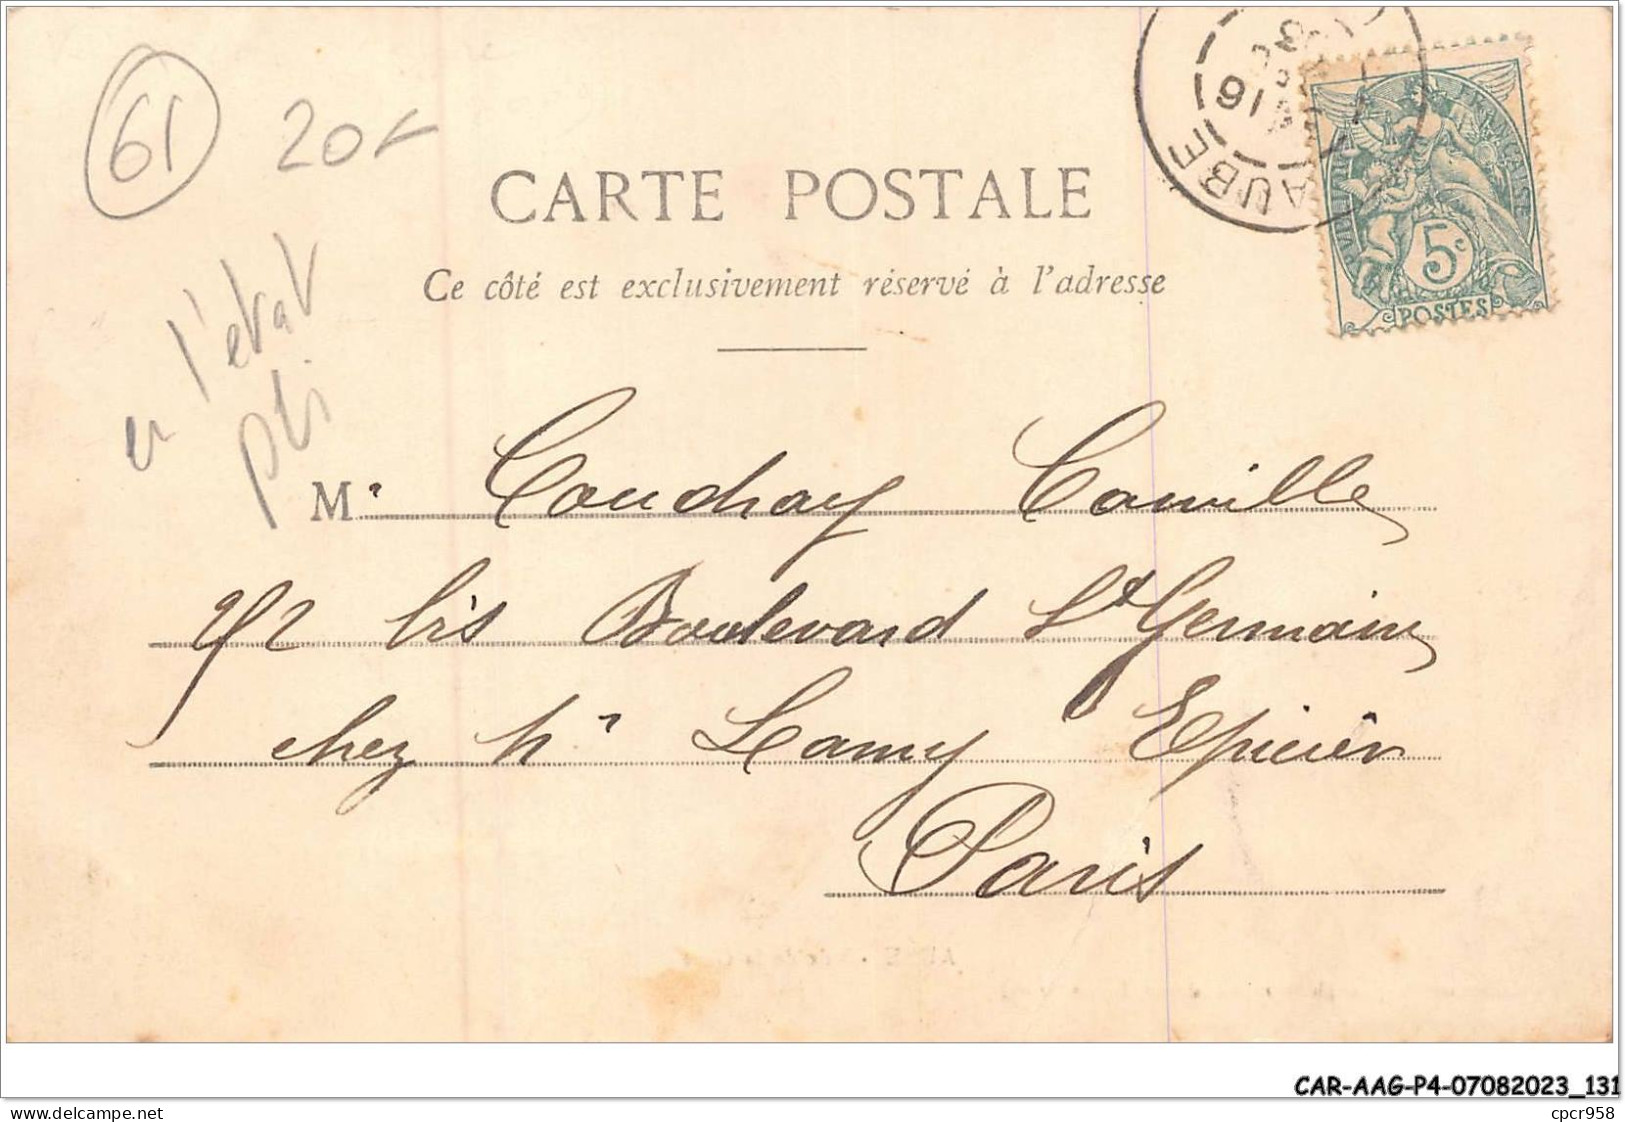 61
20
AUBE
16
RÉPUBLIQUE FRANÇAISE
5c
POSTES
CARTE POSTALE
Ce côté est exclusivement réservé à l'adresse
en l'état
pli
Mr Couchay Camille
272 bis Boulevard St Germain
chez Mr Lamy Epicier
Paris
CAR-AAG-P4-07082023_131
www.delcampe.net
cpcr958